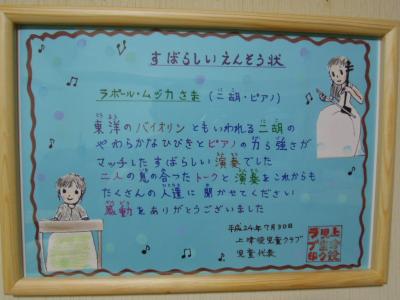 すばらしいえんそう状
ラポール・ムジカさま (二胡・ピアノ)
東洋のバイオリンともいわれる二胡の
やわらかなひびきとピアノの力強さが
マッチしたすばらしい演奏でした
二人の息の合ったトークと演奏をこれからも
たくさんの人達に聞かせてください
感動をありがとうございました
平成24年7月30日
上津役児童クラブ
児童代表